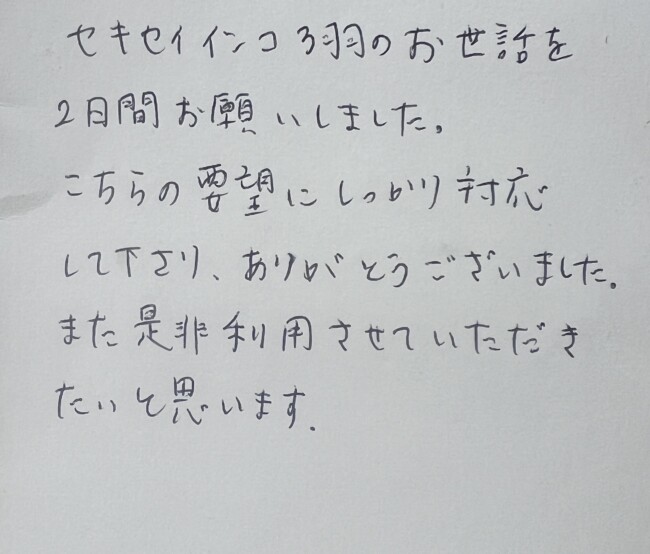 セキセイインコ3羽のお世話を
2日間お願いしました。
こちらの要望にしっかり対応
して下さり、ありがとうございました。
また是非利用させていただき
たいと思います.